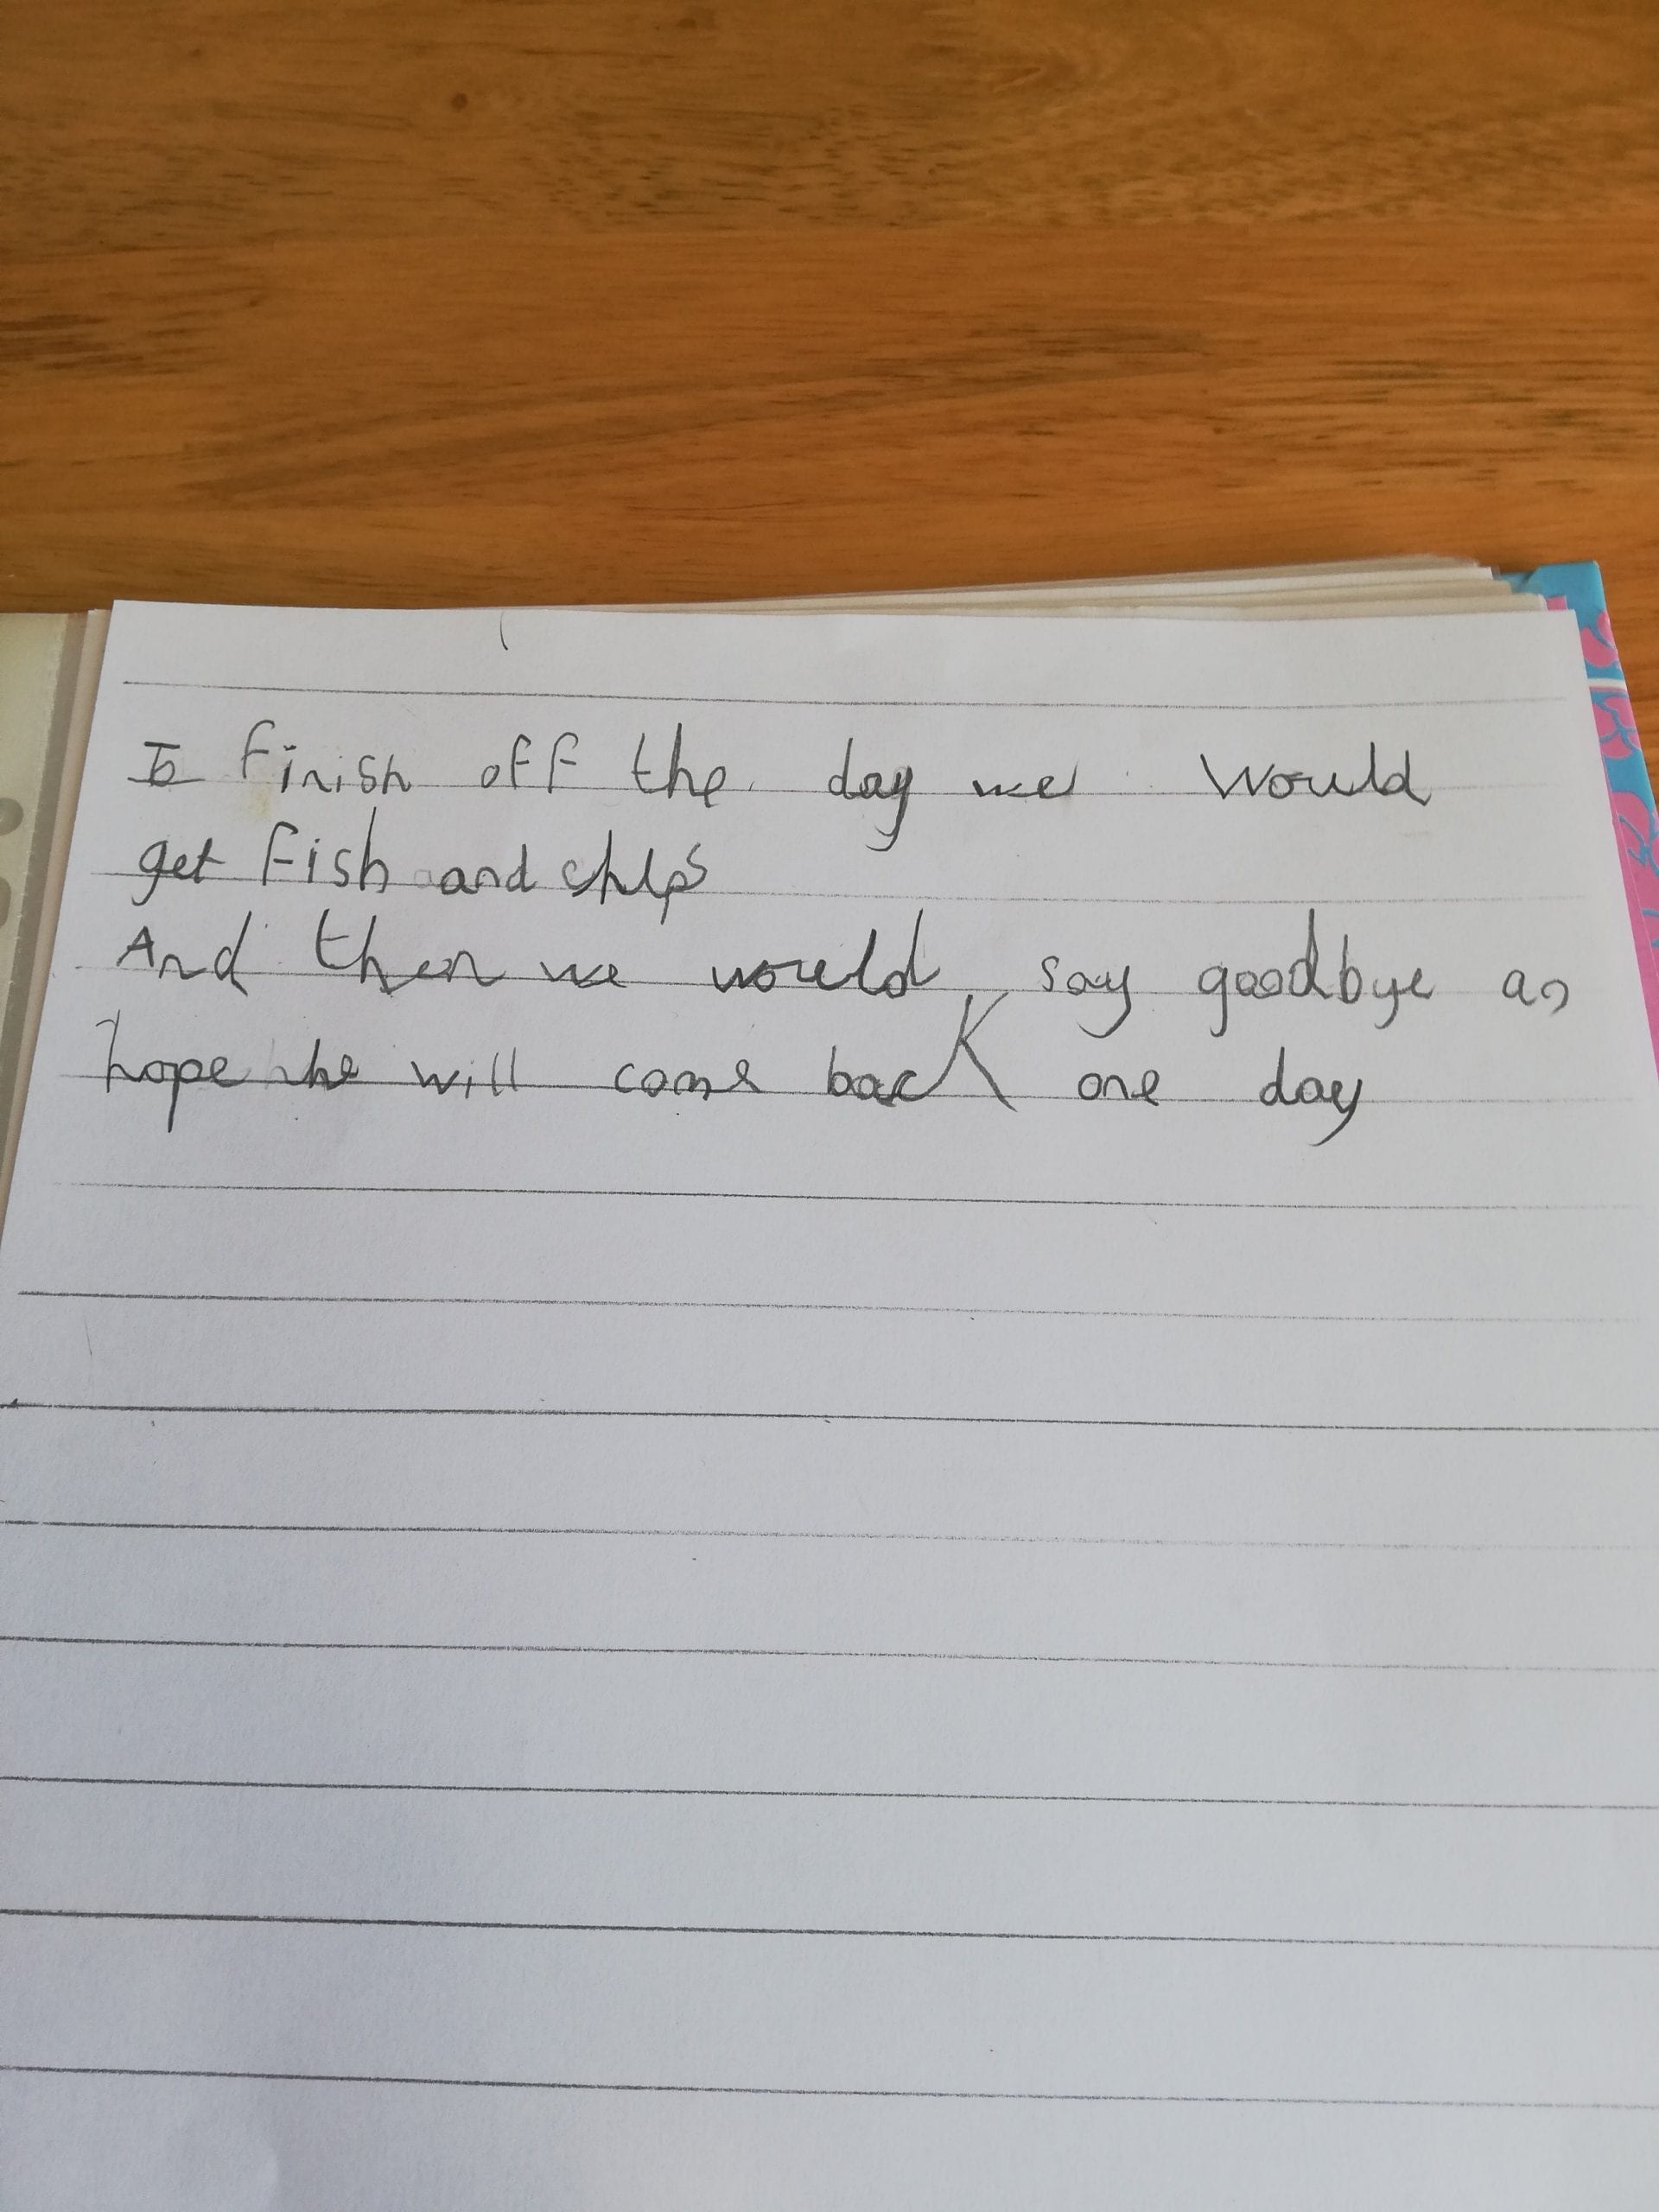 To finish off the day we would
get fish and chips
And then we would say goodbye an
hope he will come back one day